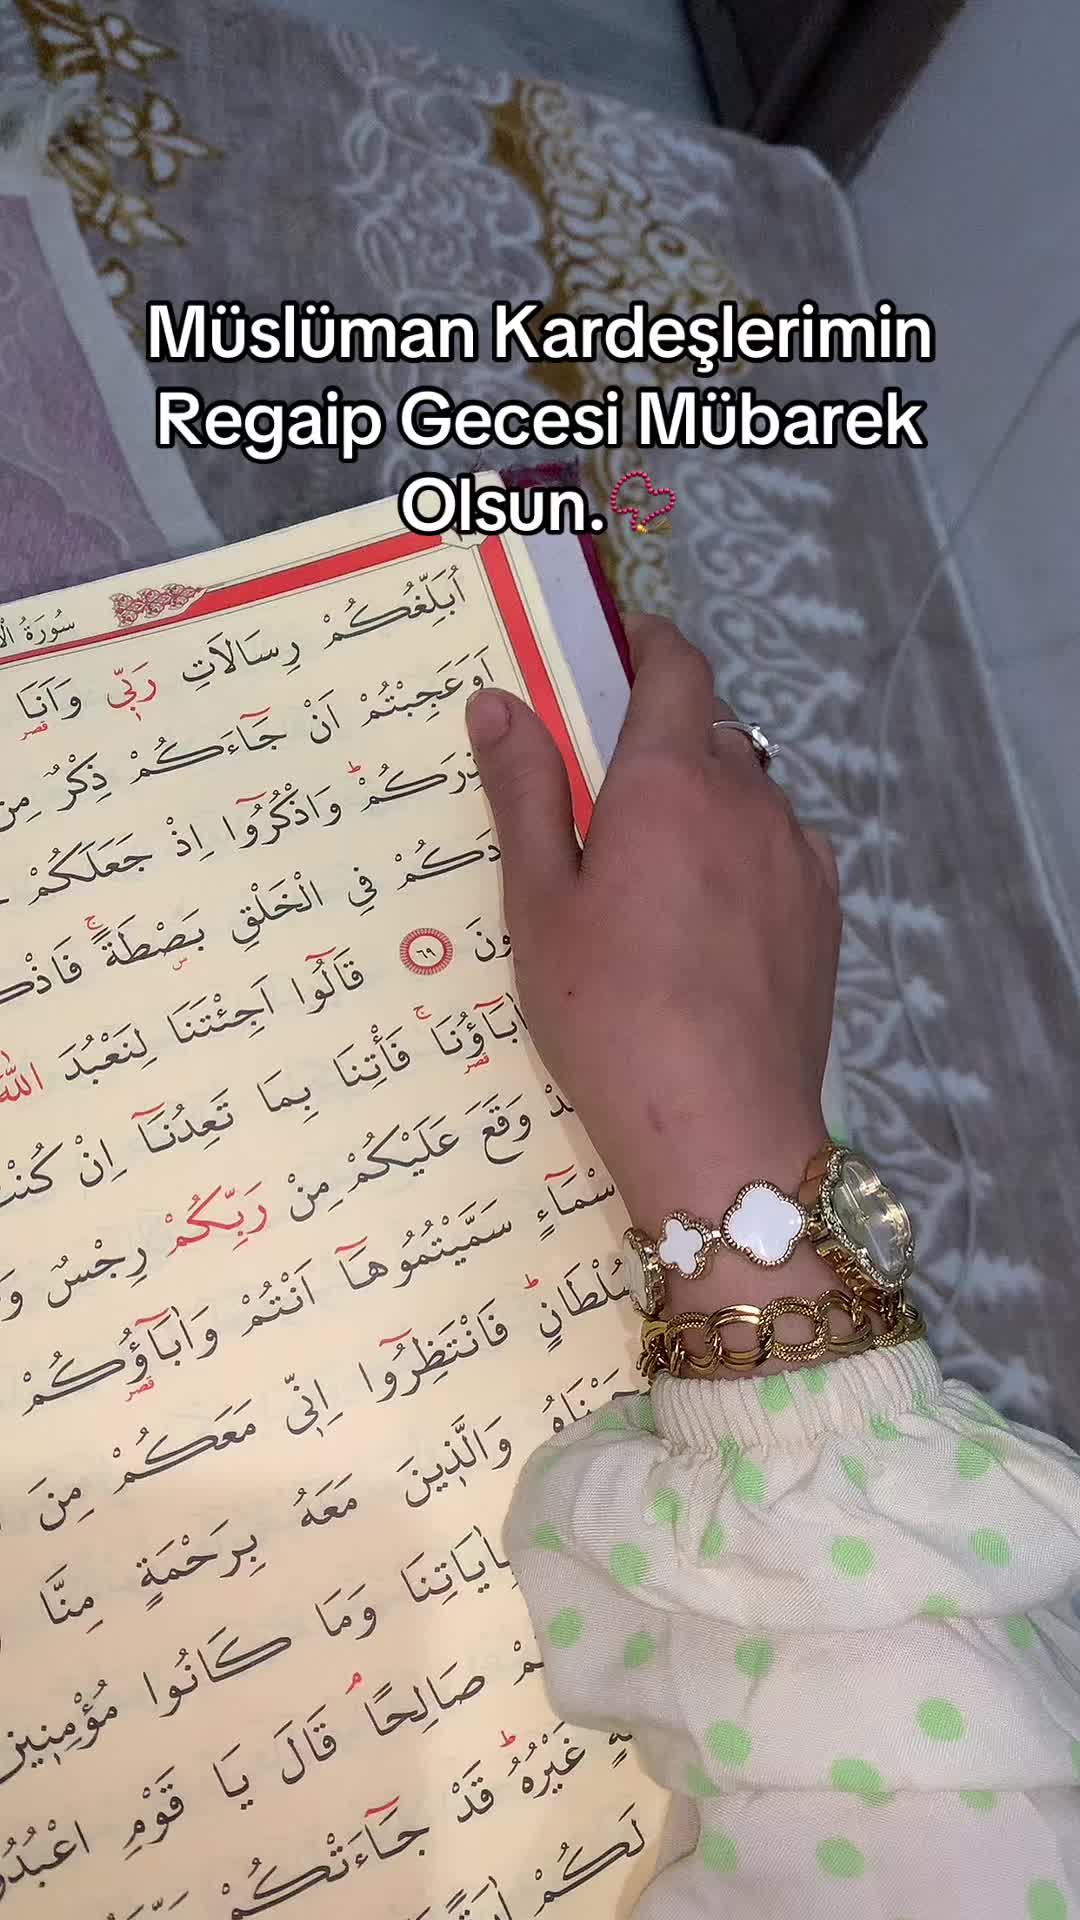 Müslüman Kardeşlerimin
Regaip Gecesi Mübarek
Olsun.
سُورَةُ
اُبَلِّغُكُمْ رِسَالَاتِ رَبّ۪ي وَاَنَا۬
قصر
اَوَعَجِبْتُمْ اَنْ جَٓاءَكُمْ ذِكْرٌ مِنْ
وَاذْكُرُٓوا اِذْ جَعَلَكُمْ
فِي الْخَلْقِ بَصْۣطَةًۚ
٦٩ قَالُٓوا اَجِئْتَنَا لِنَعْبُدَ اللّٰهَ
اٰبَٓاؤُ۬نَاۚ فَأْتِنَا بِمَا تَعِدُنَٓا اِنْ
قصر
وَقَعَ عَلَيْكُمْ مِنْ رَبِّكُمْ رِجْسٌ
سَمَّيْتُمُوهَٓا اَنْتُمْ وَاٰبَٓاؤُ۬كُمْ
قصر
فَانْتَظِرُٓوا اِنّ۪ي مَعَكُمْ مِنَ
وَالَّذ۪ينَ مَعَهُ بِرَحْمَةٍ مِنَّا
وَمَا كَانُوا مُؤْمِن۪ينَ
صَالِحًاۢ قَالَ يَا قَوْمِ
غَيْرُهُۜ قَدْ جَٓاءَتْكُمْ
لَكُمْ